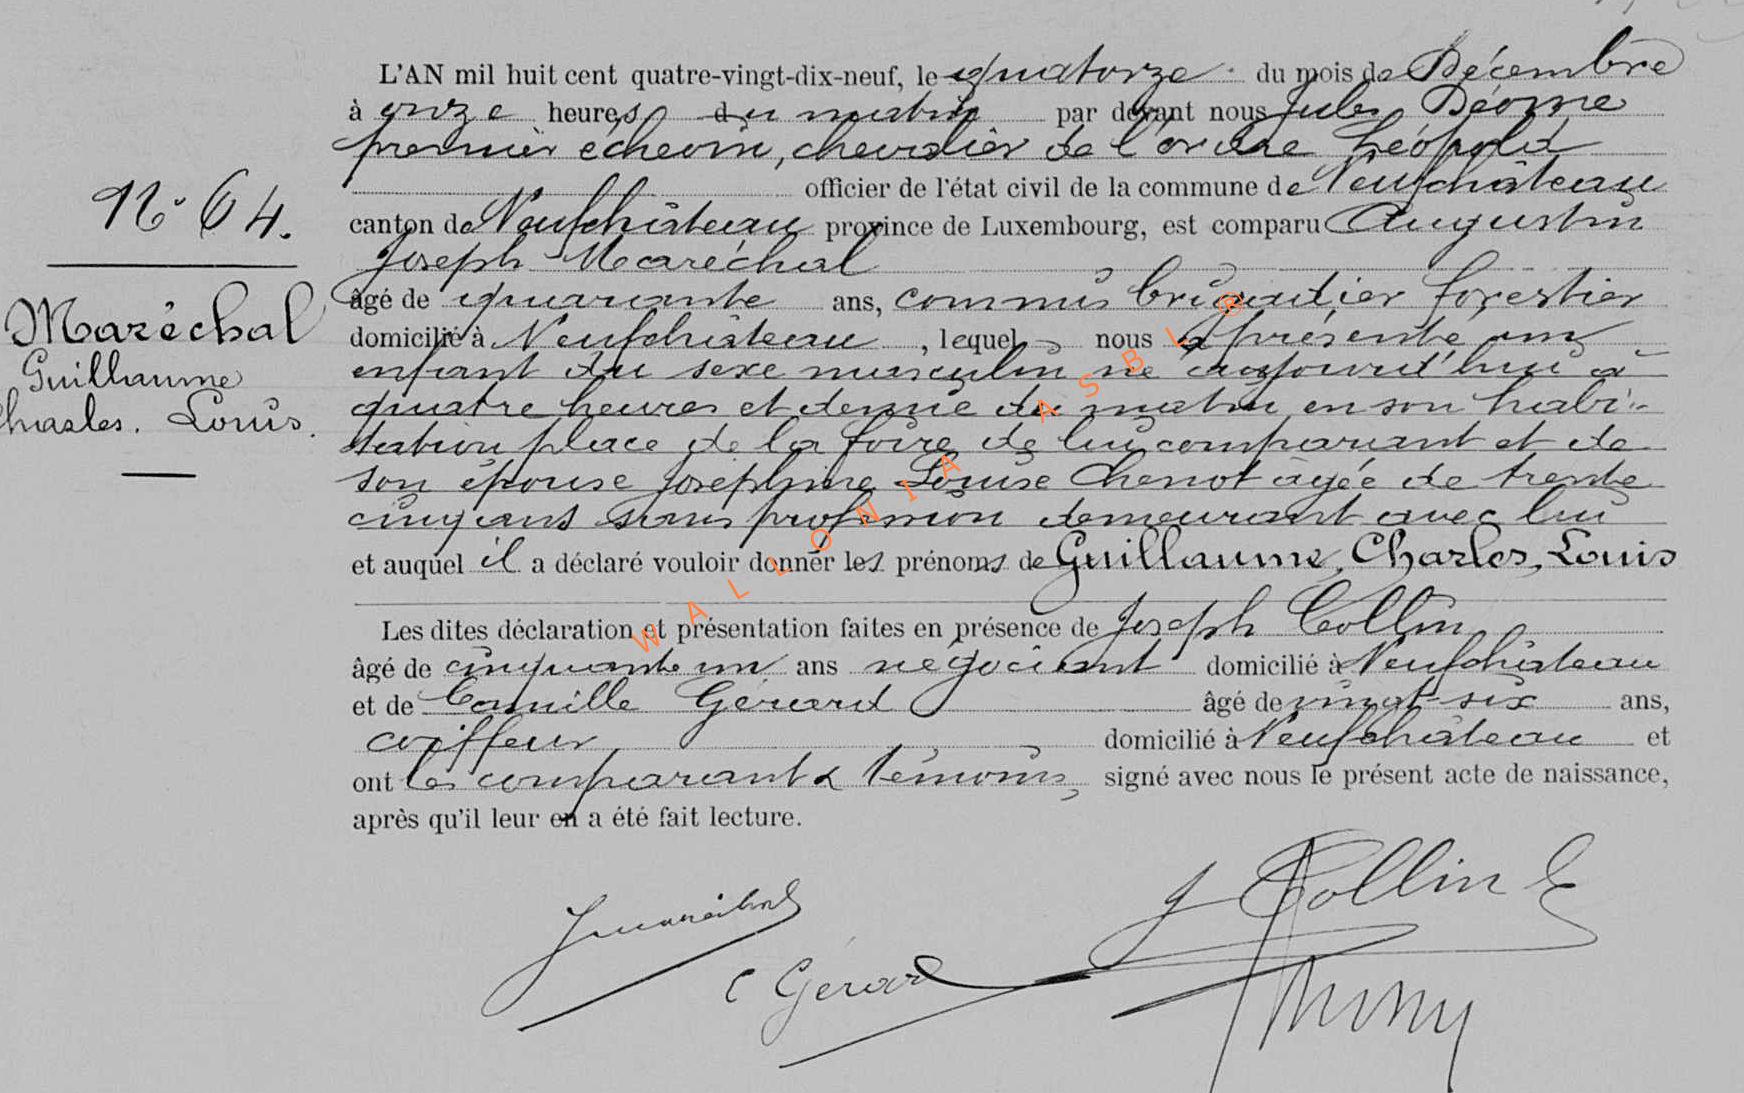 L'AN mil huit cent quatre-vingt-dix-neuf, le quatorze du mois de Décembre
à onze heures du matin par devant nous Jules Déome
premier échevin, chevalier de l'ordre Léopold
officier de l'état civil de la commune de Neufchâteau
canton de Neufchâteau province de Luxembourg, est comparu Augustin
Joseph Maréchal
âgé de quarante ans, commis brigadier forestier
domicilié à Neufchâteau, lequel nous a présenté un
enfant du sexe masculin né aujourd'hui à
quatre heures et demie du matin en son habi-
tation place de la foire de lui comparant et de
son épouse Joséphine Louise Chenot âgée de trente
cinq ans sans profession demeurant avec lui
et auquel il a déclaré vouloir donner les prénoms de Guillaume, Charles, Louis
Les dites déclaration et présentation faites en présence de Joseph Collin
âgé de cinquante un ans négociant domicilié à Neufchâteau
et de Camille Gérard âgé de vingt-six ans,
coiffeur domicilié à Neufchâteau et
ont les comparant & témoins, signé avec nous le présent acte de naissance,
après qu'il leur en a été fait lecture.
N° 64.
Maréchal
Guillaume
Charles. Louis.
J Maréchal
J Collin
C Gérard
WALLONIA ASBL ®